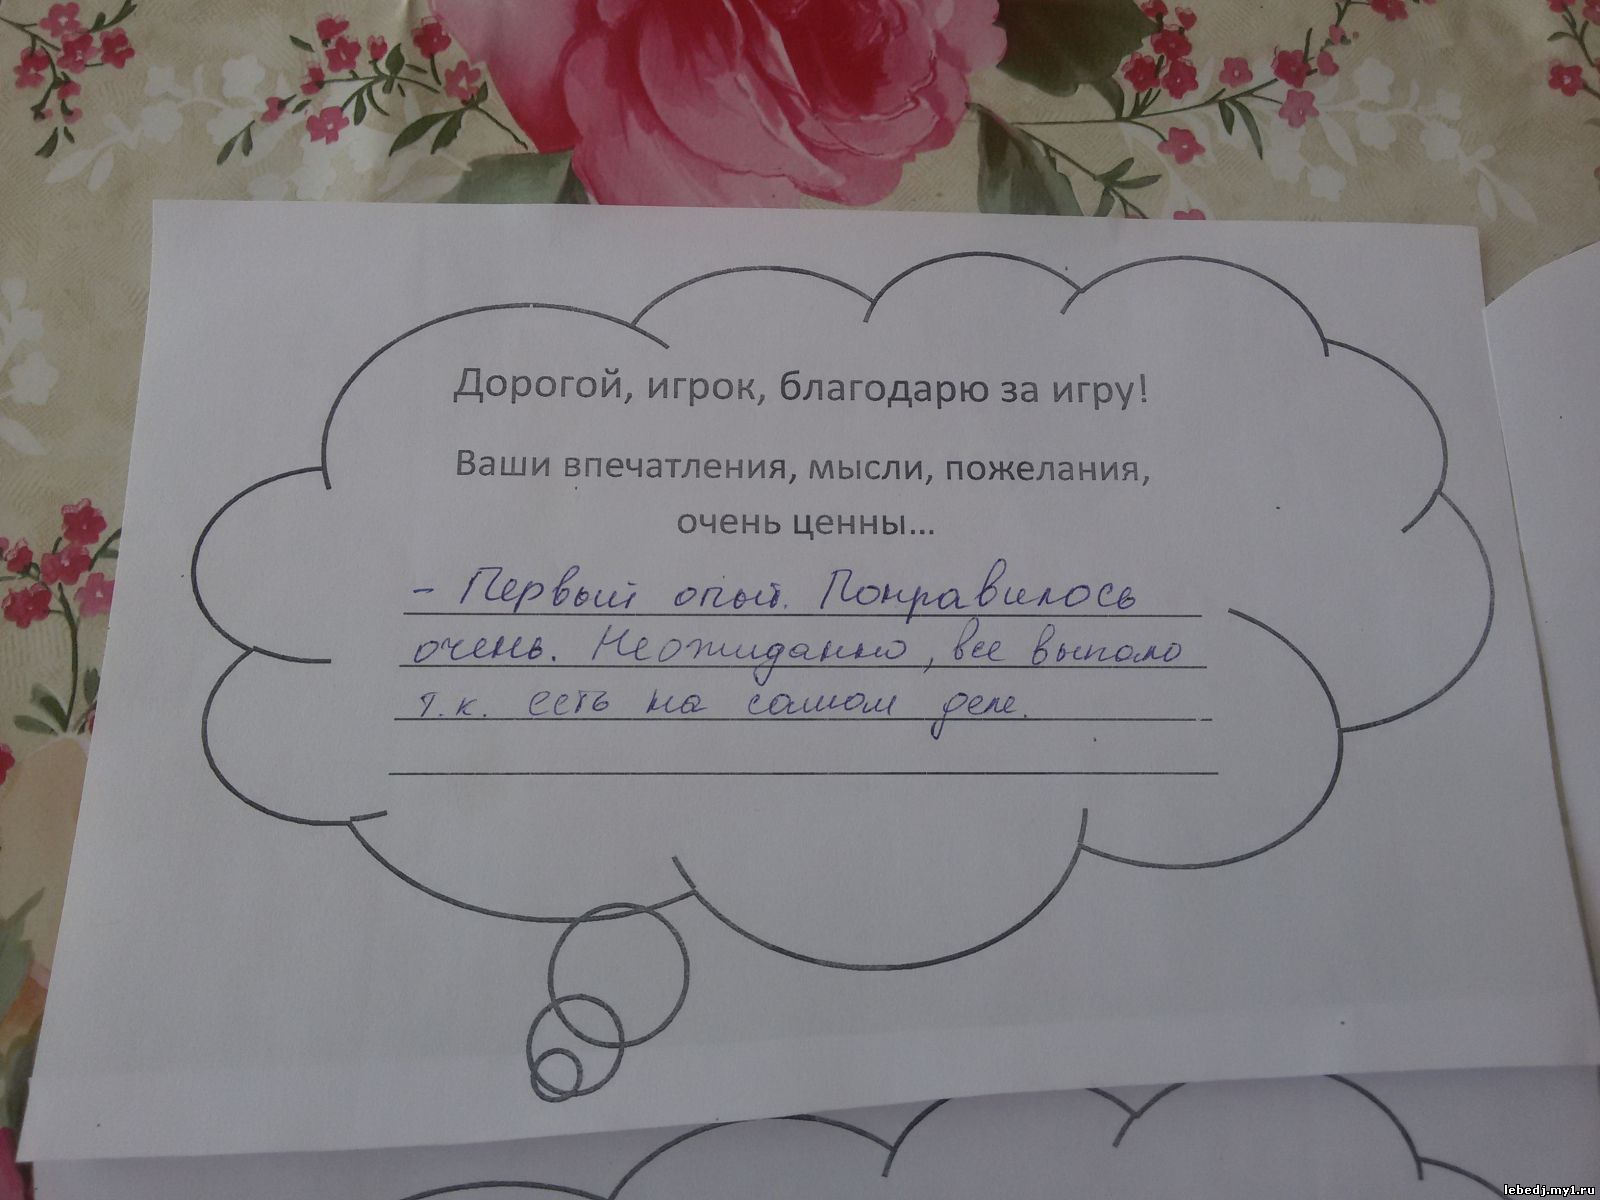 Дорогой, игрок, благодарю за игру!
Ваши впечатления, мысли, пожелания,
очень ценны...
- Первый опыт. Понравилось
очень. Неожиданно, все выпало
т.к. есть на самом деле.
lebedj.my1.ru